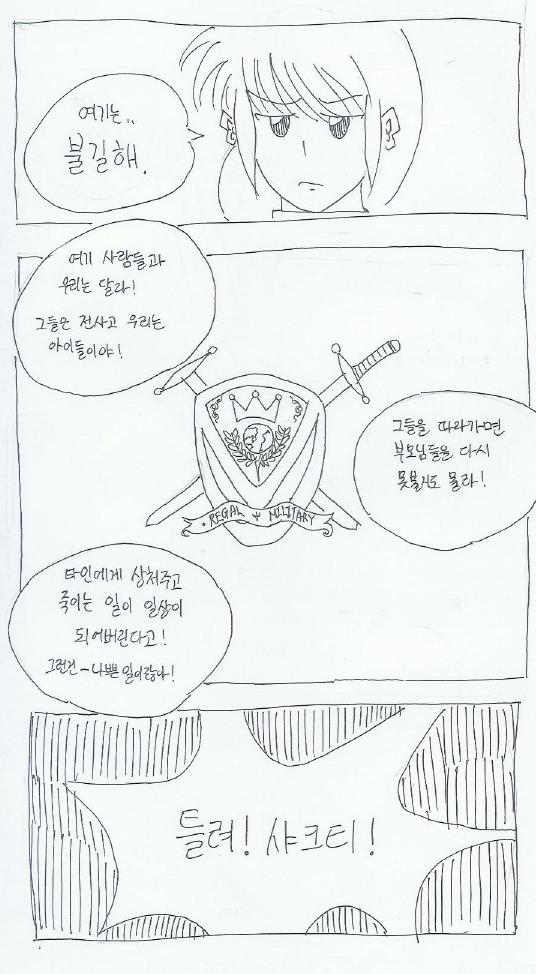 여기는..
불길해.
여기 사람들과
우리는 달라!
그들은 전사고 우리는
아이들이야!
그들을 따라가면
부모님들을 다시
못볼지도 몰라!
REGAL MILITARY
타인에게 상처주고
죽이는 일이 일상이
되어버린다고!
그런건 ~ 나쁜일이랬다!
틀려! 샤크티!